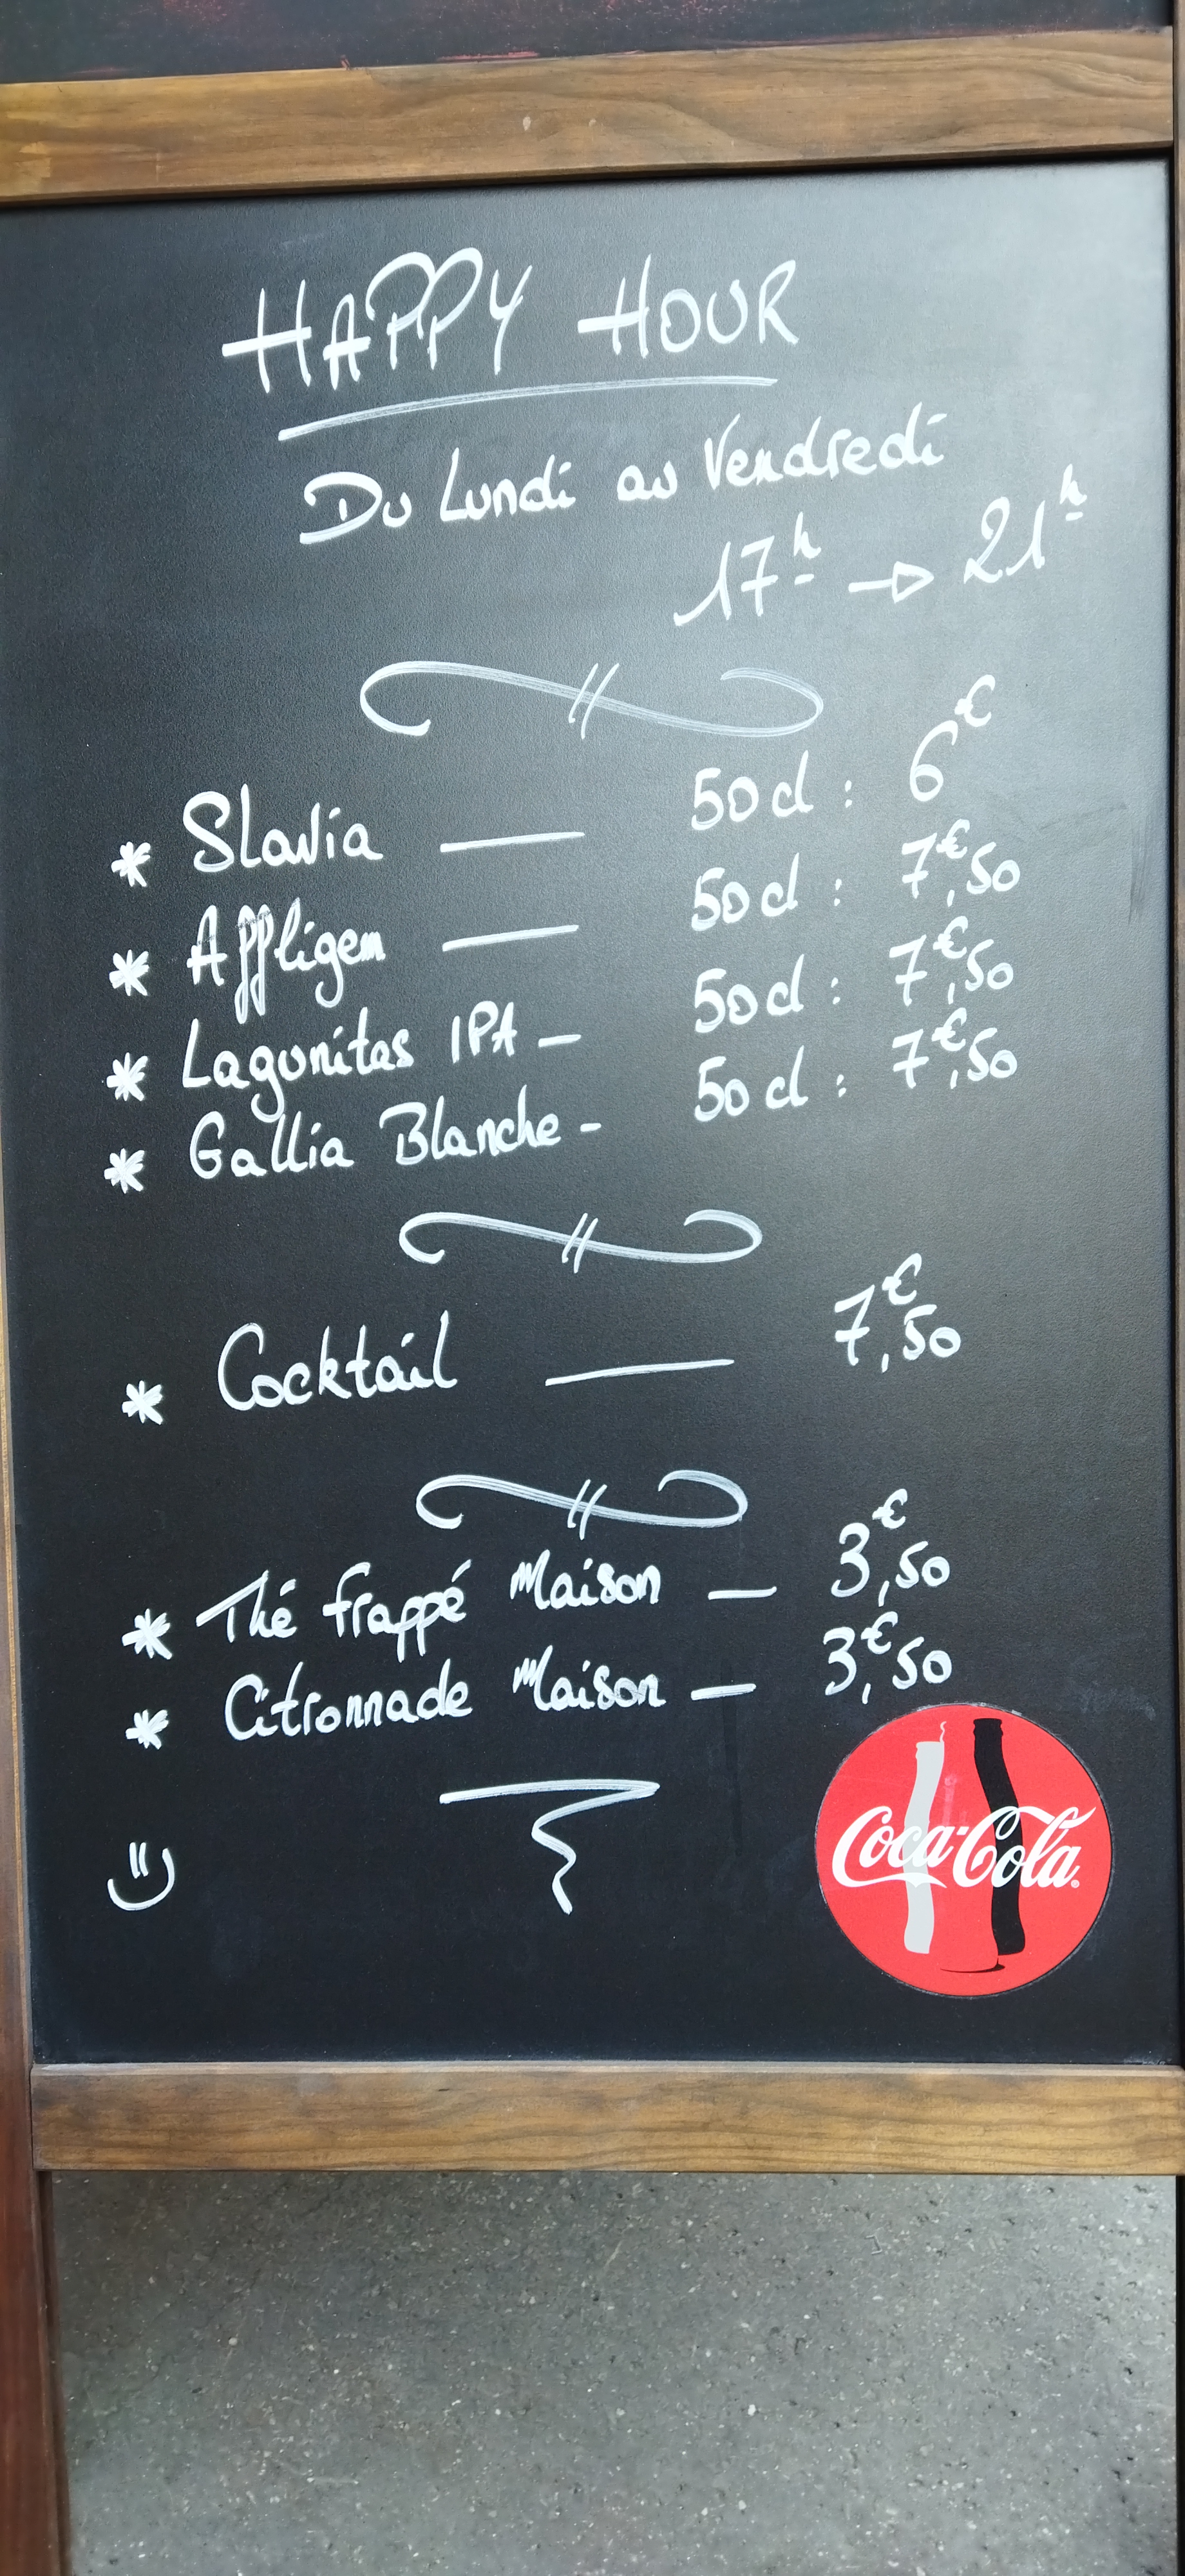 HAPPY HOUR
Du Lundi au Vendredi
17h → 21h
* Slavia — 50cl : 6€
* Affligem — 50cl : 7€,50
* Lagunitas IPA - 50cl : 7€,50
* Gallia Blanche - 50cl : 7€,50
* Cocktail — 7€,50
* Thé frappé Maison — 3€,50
* Citronnade Maison — 3€,50
Coca-Cola®